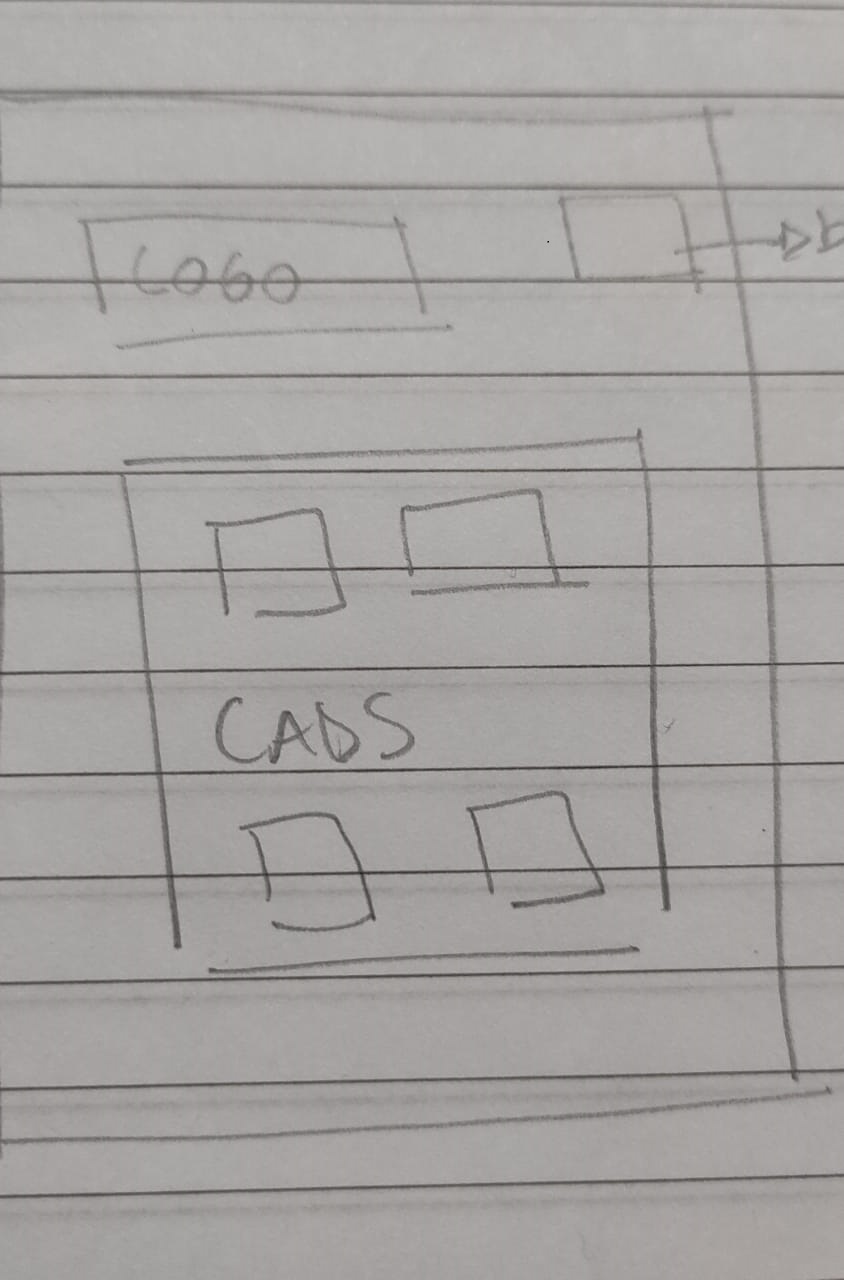 LOGO
CADS